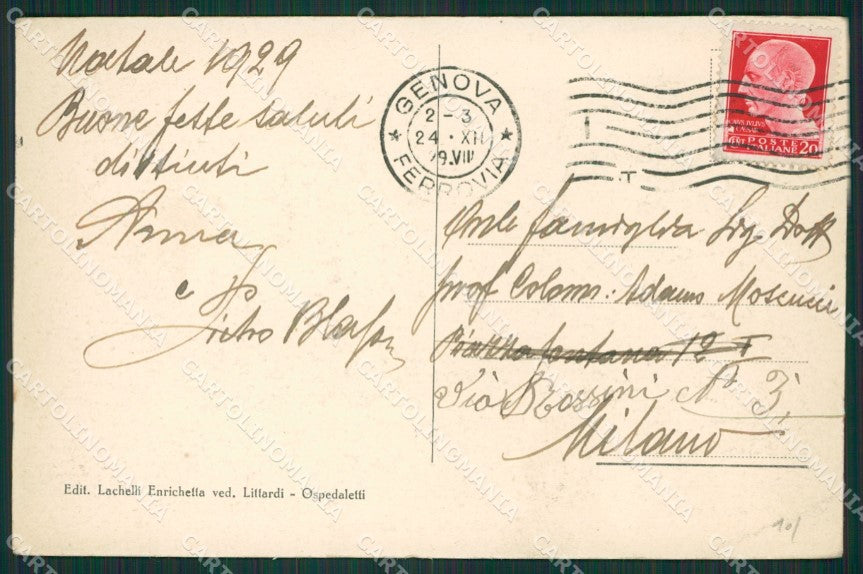 Natale 1929
Buone feste saluti
distinti
Anna
e
Pietro
GENOVA
2 - 3
24 · XII
29.VIII
FERROVIA
T
CAIUS IULIUS
CAESAR
POSTE
ITALIANE 20
famiglia Sig. Dott
prof Colomo: Adamo
Piazza fontana 12
Via Rossini N° 3
Milano
Edit. Lachelli Enrichetta ved. Littardi - Ospedaletti
CARTOLINOMANIA